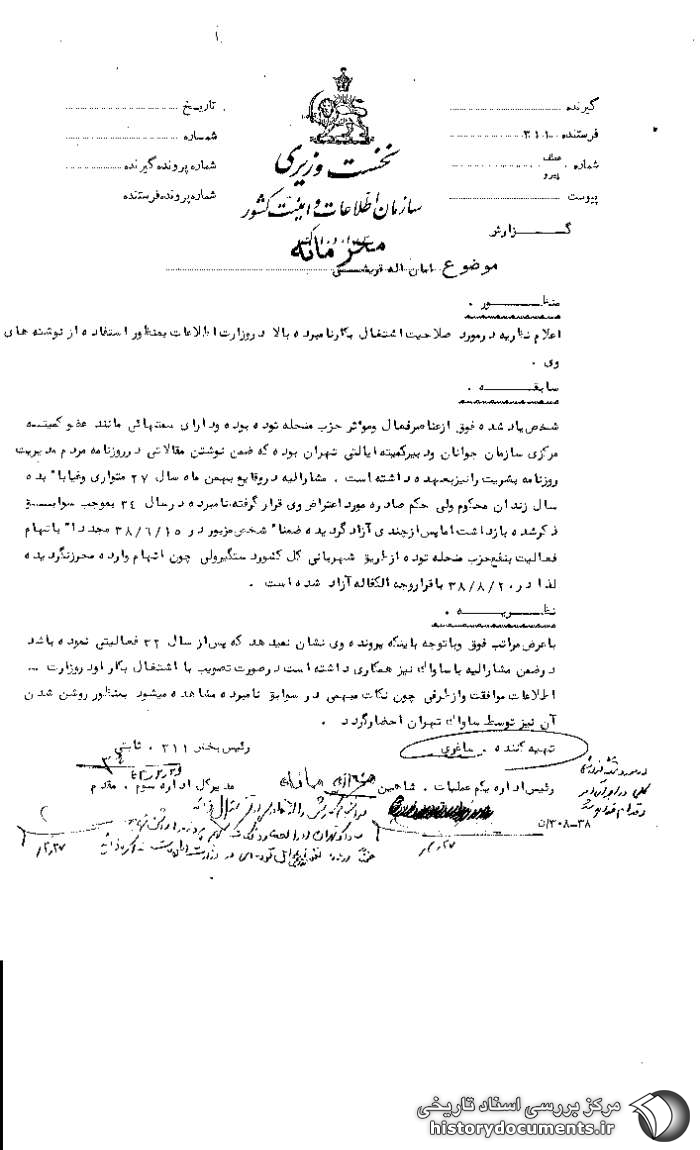 گیرنده
فرستنده ۳۱۱
شماره عطف پیرو
پیوست
تاریخ
شماره
شماره پرونده گیرنده
شماره پرونده فرستنده
نخست وزیری
سازمان اطلاعات و امنیت کشور
گزارش
محرمانه
موضوع امان اله قریشی
منظور .
اعلام نظریه در مورد صلاحیت اشتغال بکار نامبرده بالا در وزارت اطلاعات بمنظور استفاده از نوشته های
وی .
سابقه .
شخص یاد شده فوق از عناصر فعال و موثر حزب منحله توده بوده و دارای سمتهائی مانند عضو کمیته
مرکزی سازمان جوانان و دبیر کمیته ایالتی تهران بوده که ضمن نوشتن مقالاتی در روزنامه مردم مدیریت
روزنامه بشریت را نیز بعهده داشته است . مشارالیه در وقایع بهمن ماه سال ۲۷ متواری و غیابا" بده
سال زندان محکوم ولی حکم صادره مورد اعتراض وی قرار گرفته، نامبرده در سال ۳۴ بموجب سوابق
ذکر شده بازداشت اما پس از چندی آزاد گردیده ضمنا" شخص مزبور در ۳۸/۶/۱۵ مجددا" باتهام
فعالیت بنفع حزب منحله توده از طریق شهربانی کل کشور دستگیر ولی چون اتهام وارده محرز نگردیده
لذا در ۳۸/۸/۲۰ با قرار وجه الکفاله آزاد شده است .
نظریه .
با عرض مراتب فوق و با توجه باینکه پرونده وی نشان نمیدهد که پس از سال ۳۲ فعالیتی نموده باشد
و در ضمن مشارالیه با ساواک نیز همکاری داشته است در صورت تصویب با اشتغال بکار او در وزارت ...
اطلاعات موافقت و از طرفی چون نکات مبهمی در سوابق نامبرده مشاهده میشود بمنظور روشن شدن
آن نیز توسط ساواک تهران احضار گردد .
تهیه کننده . صاغری
رئیس بخش ۳۱۱ . ثابتی
رئیس اداره یکم عملیات . شاهین
مدیر کل اداره سوم . مقدم
۳۰۸-۳۸/ن
۲/۲۷
۲/۲۷
مرکز بررسی اسناد تاریخی
historydocuments.ir